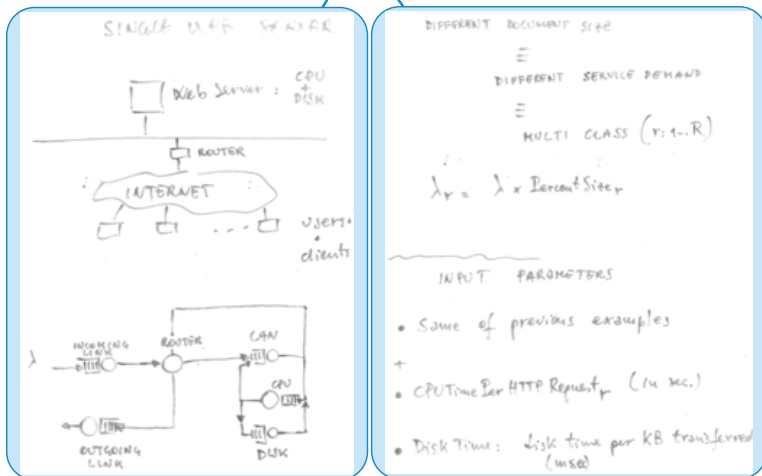 SINGLE WEB SERVER
Web Server : CPU
+
DISK
ROUTER
INTERNET
....
users.
clients
λ
INCOMING
LINK
ROUTER
LAN
CPU
DISK
OUTGOING
LINK
DIFFERENT DOCUMENT SIZE
≡
DIFFERENT SERVICE DEMAND
≡
MULTI CLASS (r: 1..R)
∴
λr = λ × PercentSizer
INPUT PARAMETERS
• Same of previous examples
+
• CPUTimePerHTTPRequestr (in sec.)
• Disk Time: disk time per KB transferred
(msec)